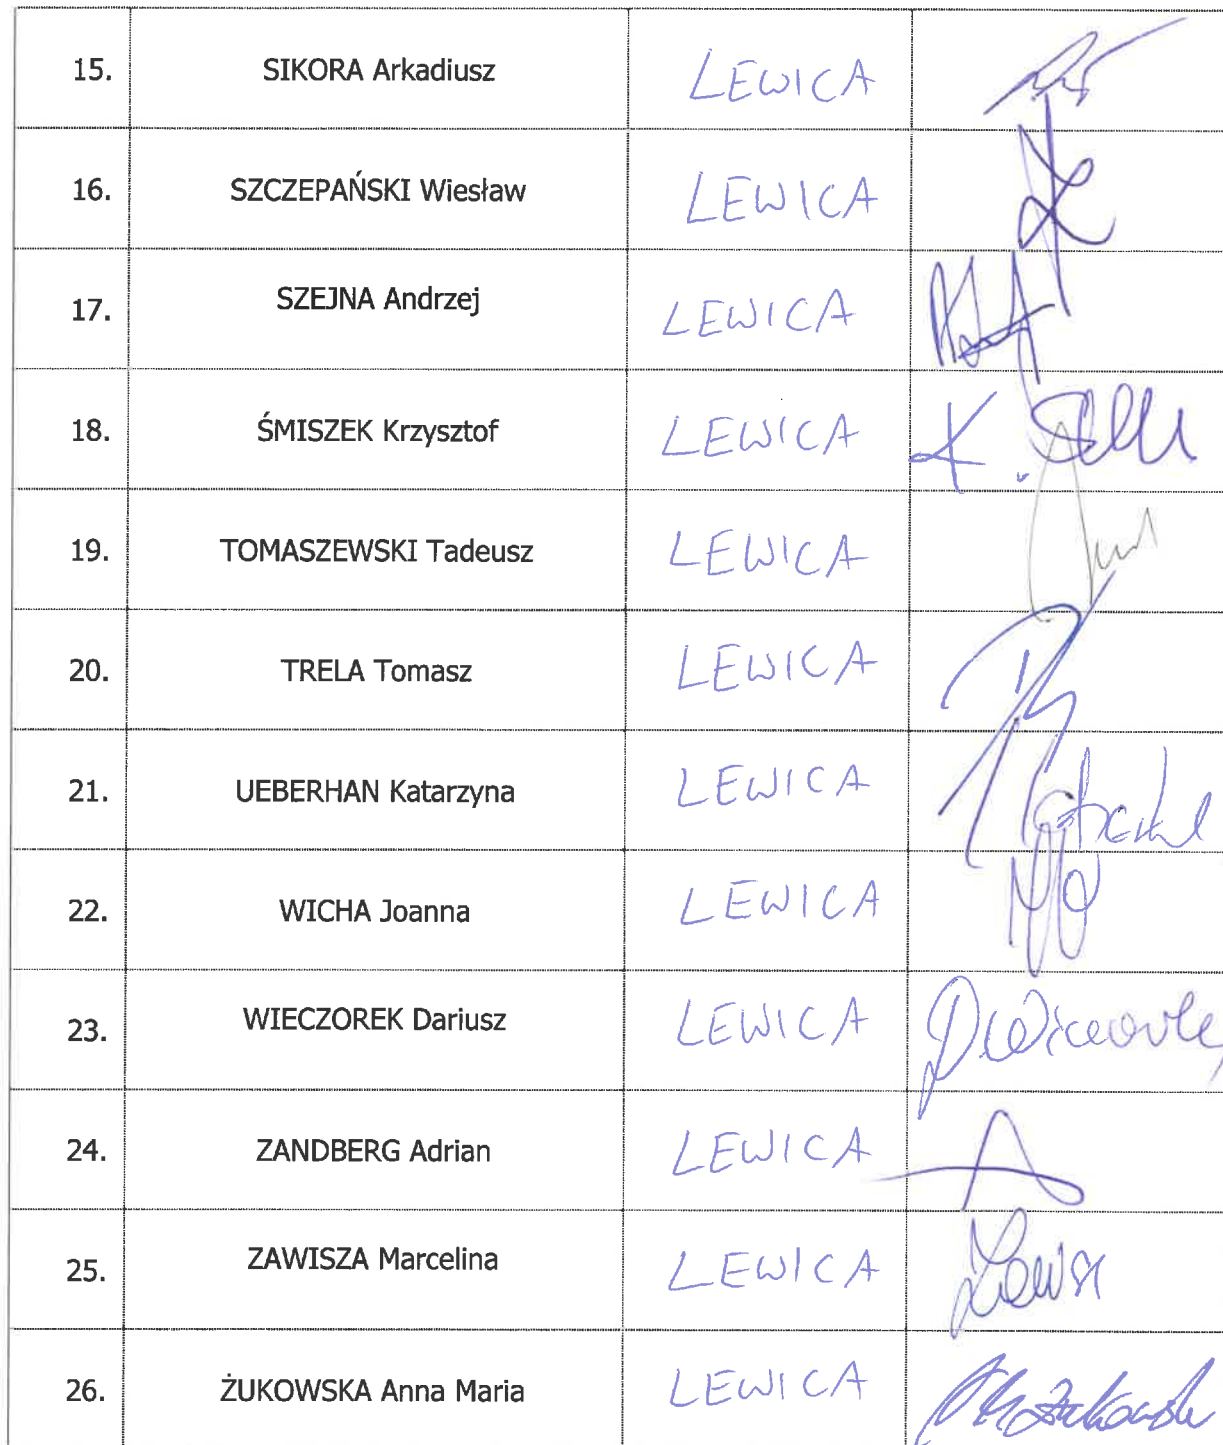 15. SIKORA Arkadiusz LEWICA
16. SZCZEPAŃSKI Wiesław LEWICA
17. SZEJNA Andrzej LEWICA
18. ŚMISZEK Krzysztof LEWICA K.
19. TOMASZEWSKI Tadeusz LEWICA
20. TRELA Tomasz LEWICA
21. UEBERHAN Katarzyna LEWICA
22. WICHA Joanna LEWICA
23. WIECZOREK Dariusz LEWICA
24. ZANDBERG Adrian LEWICA
25. ZAWISZA Marcelina LEWICA
26. ŻUKOWSKA Anna Maria LEWICA